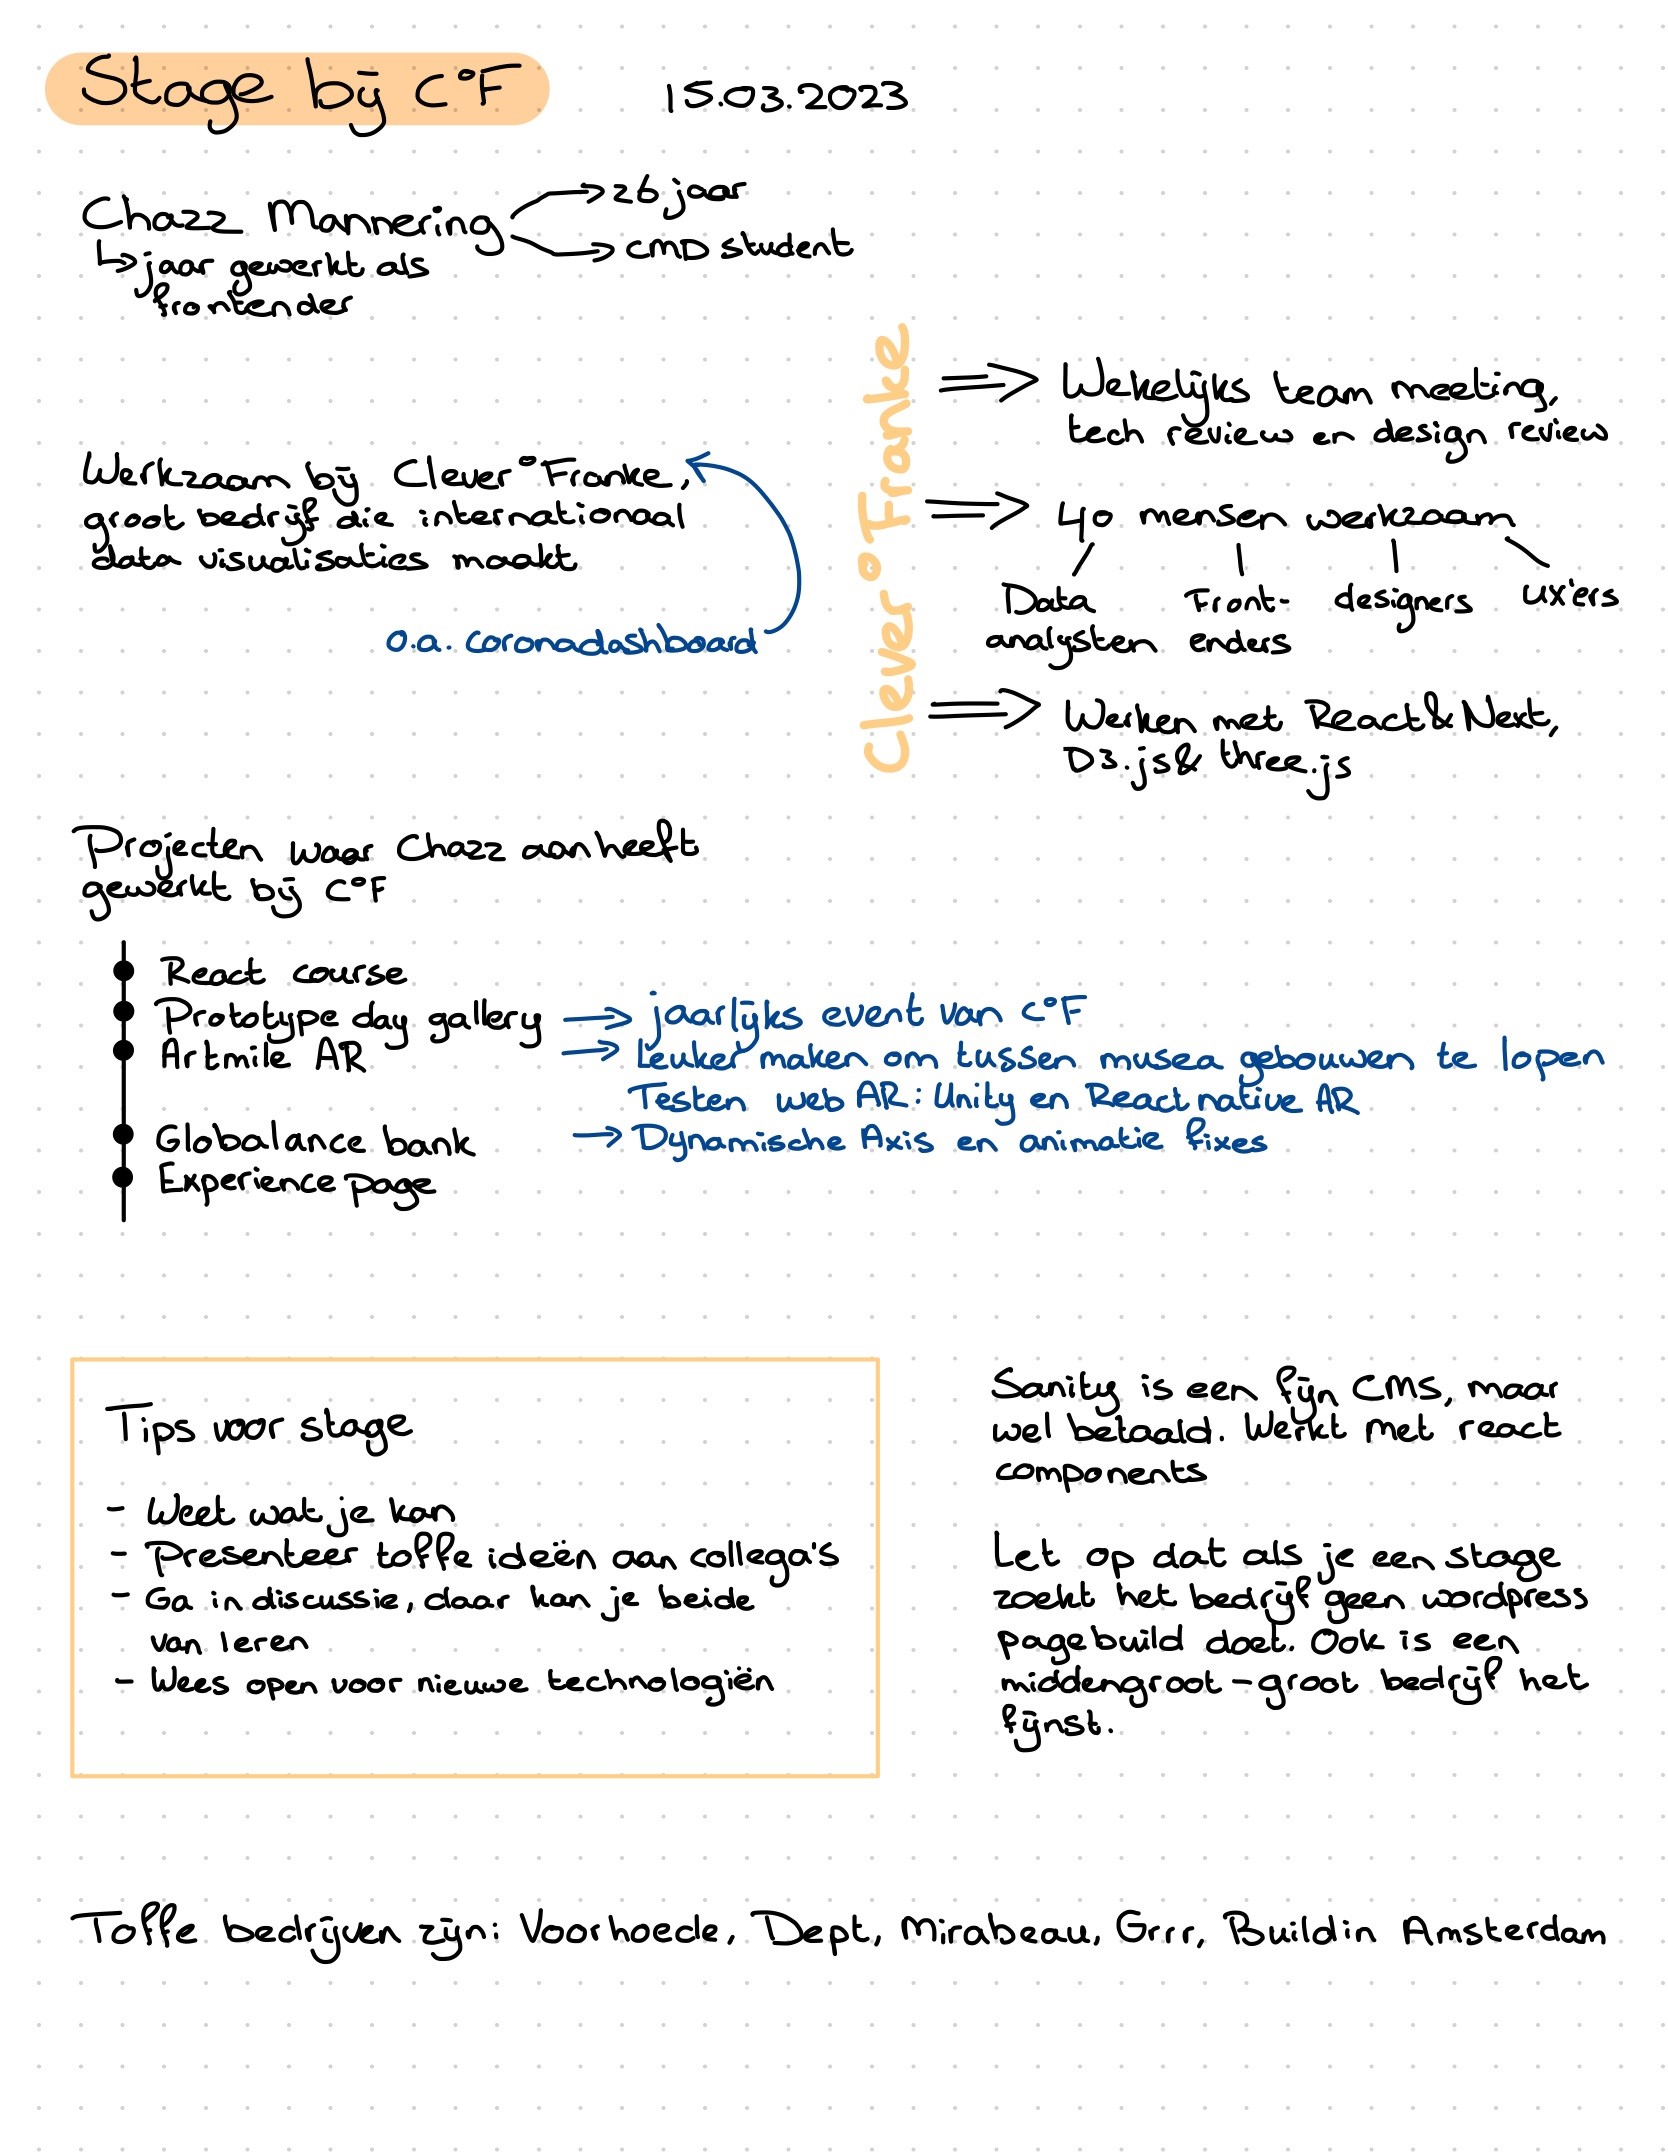 Stage bij C°F
15.03.2023
Chazz Mannering
26 jaar
CMD student
jaar gewerkt als
frontender
Werkzaam bij Clever°Franke,
groot bedrijf die internationaal
data visualisaties maakt
o.a. coronadashboard
Clever°Franke
Wekelijks team meeting,
tech review en design review
40 mensen werkzaam
Data
analysten
Front-
enders
designers
ux'ers
Werken met React & Next,
D3.js & three.js
Projecten waar Chazz aan heeft
gewerkt bij C°F
React course
Prototype day gallery
jaarlijks event van C°F
Artmile AR
Leuker maken om tussen musea gebouwen te lopen
Testen web AR: Unity en React native AR
Globalance bank
Dynamische Axis en animatie fixes
Experience page
Tips voor stage
- Weet wat je kan
- Presenteer toffe ideën aan collega's
- Ga in discussie, daar kan je beide
van leren
- Wees open voor nieuwe technologiën
Sanity is een fijn CMS, maar
wel betaald. Werkt met react
components
Let op dat als je een stage
zoekt het bedrijf geen wordpress
pagebuild doet. Ook is een
middengroot - groot bedrijf het
fijnst.
Toffe bedrijven zijn: Voorhoede, Dept, Mirabeau, Grrr, Buildin Amsterdam